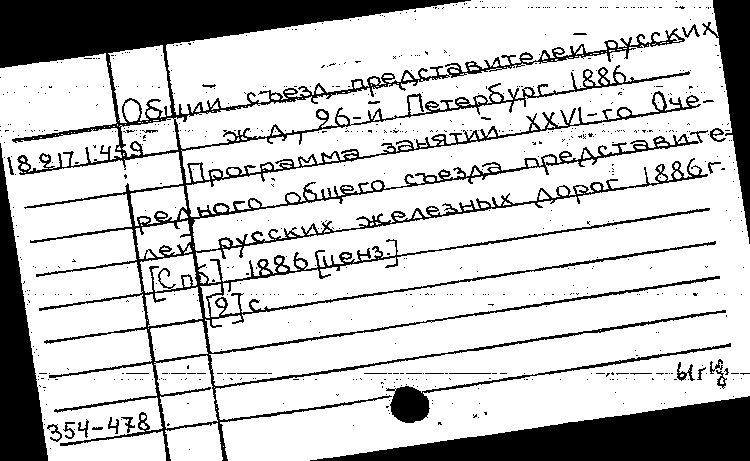 Общий съезд представителей русских
ж. д., 26-й. Петербург. 1886.
18.217.1.459
Программа занятий XXVI-го Оче-
редного общего съезда представите-
лей русских железных дорог 1886 г.
[Спб.], 1886 [ценз.].
[2] с.
354-478